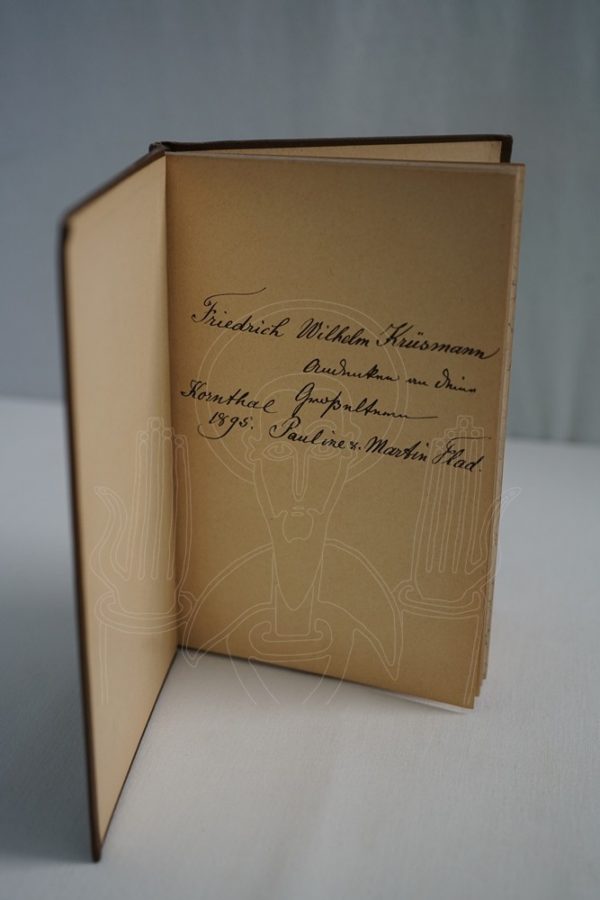 Friedrich Wilhelm Krüsmann
Andenken an deine
Kornthal Großeltern
1895. Pauline & Martin Flad.